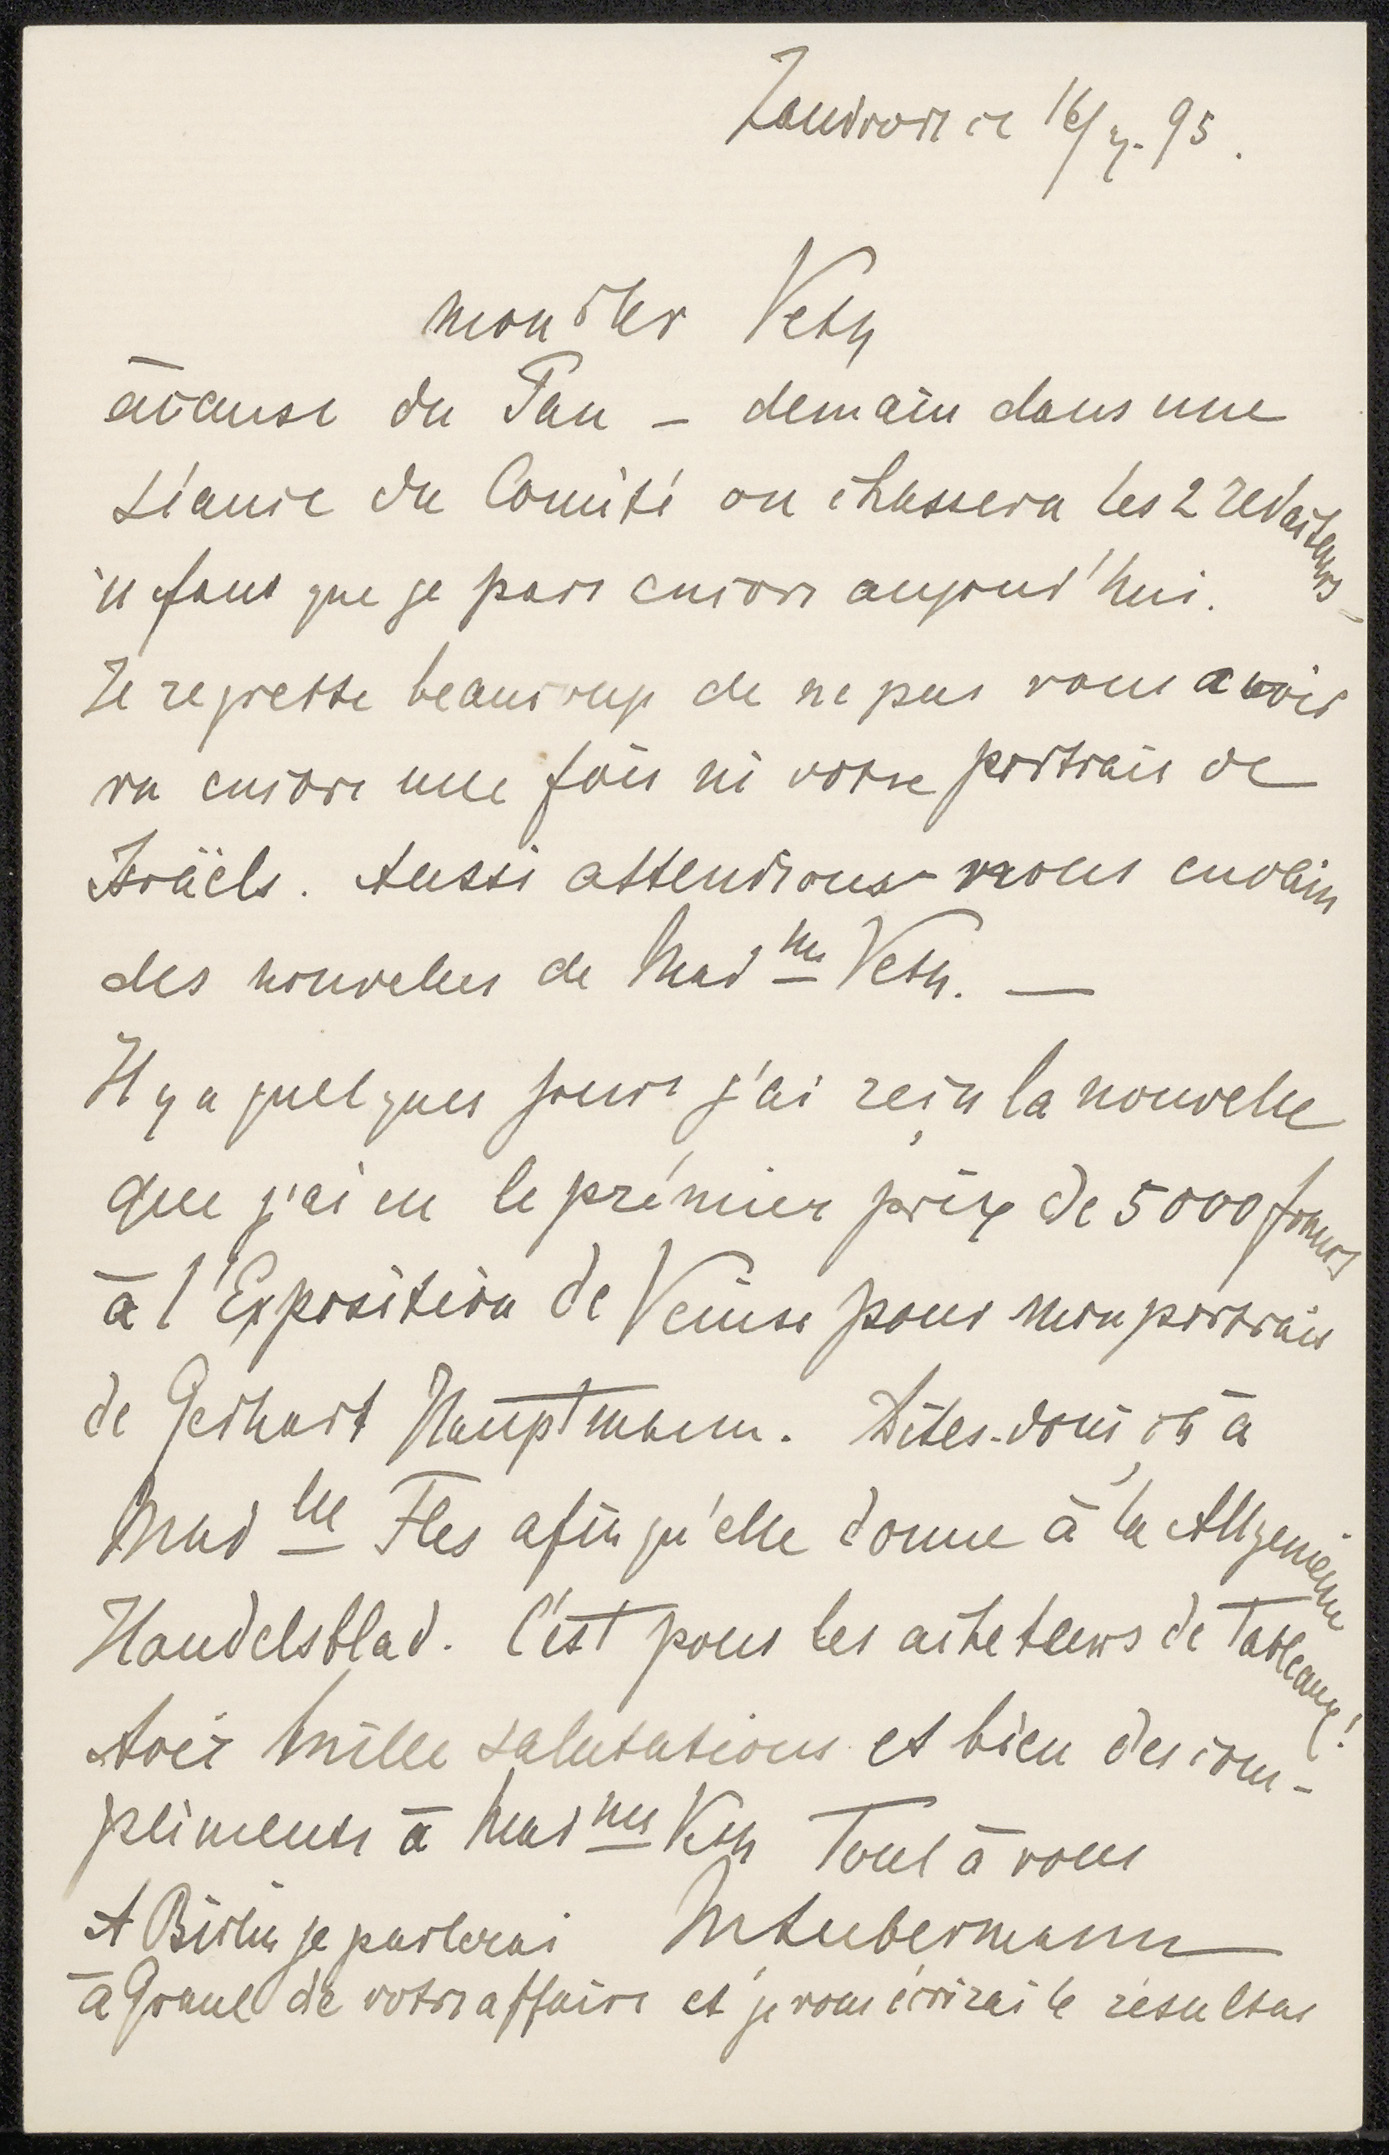 Zandvort ce 16/9. 95.
mon cher Veth
à cause du Pan – demain dans une
séance du Comité on chassera les 2 redacteurs –
il faut que je pars encore aujourd'hui.
Je regrette beaucoup de ne pas vous avoir
vu encore une fois ni votre portrait de
Israëls. Aussi attendions-nous envain
des nouvelles de Madme Veth. —
Il y a quelques jours j'ai reçu la nouvelle
que j'ai eu le prémier prix de 5000 francs
à l'Exposition de Venise pour mon portrait
de Gerhart Hauptmann. Dites-donc ça à
Madlle Fles afin qu'elle donne à la Allgemeene
Handelsblad. C'est pour les acheteurs de Tableaux!
Avec mille salutations et bien des com-
pliments à Madme Veth Tout à vous
MLiebermann
A Berlin je parlerai
à Graul de votre affaire et je vous écrirai le résultat